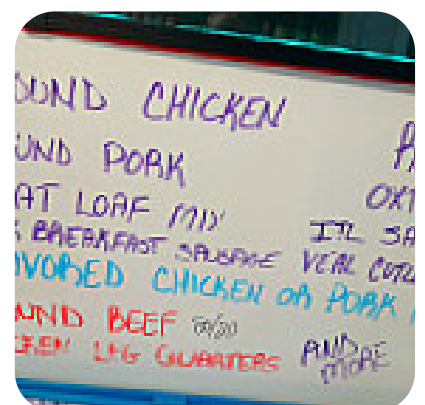 OUND CHICKEN
UND PORK
AT LOAF MIX
BREAKFAST SAUSAGE
VORED CHICKEN OR PORK
UND BEEF 80/20
CKEN LEG QUARTERS
OXT
ITL SA
VEAL CUTL
AND
MORE